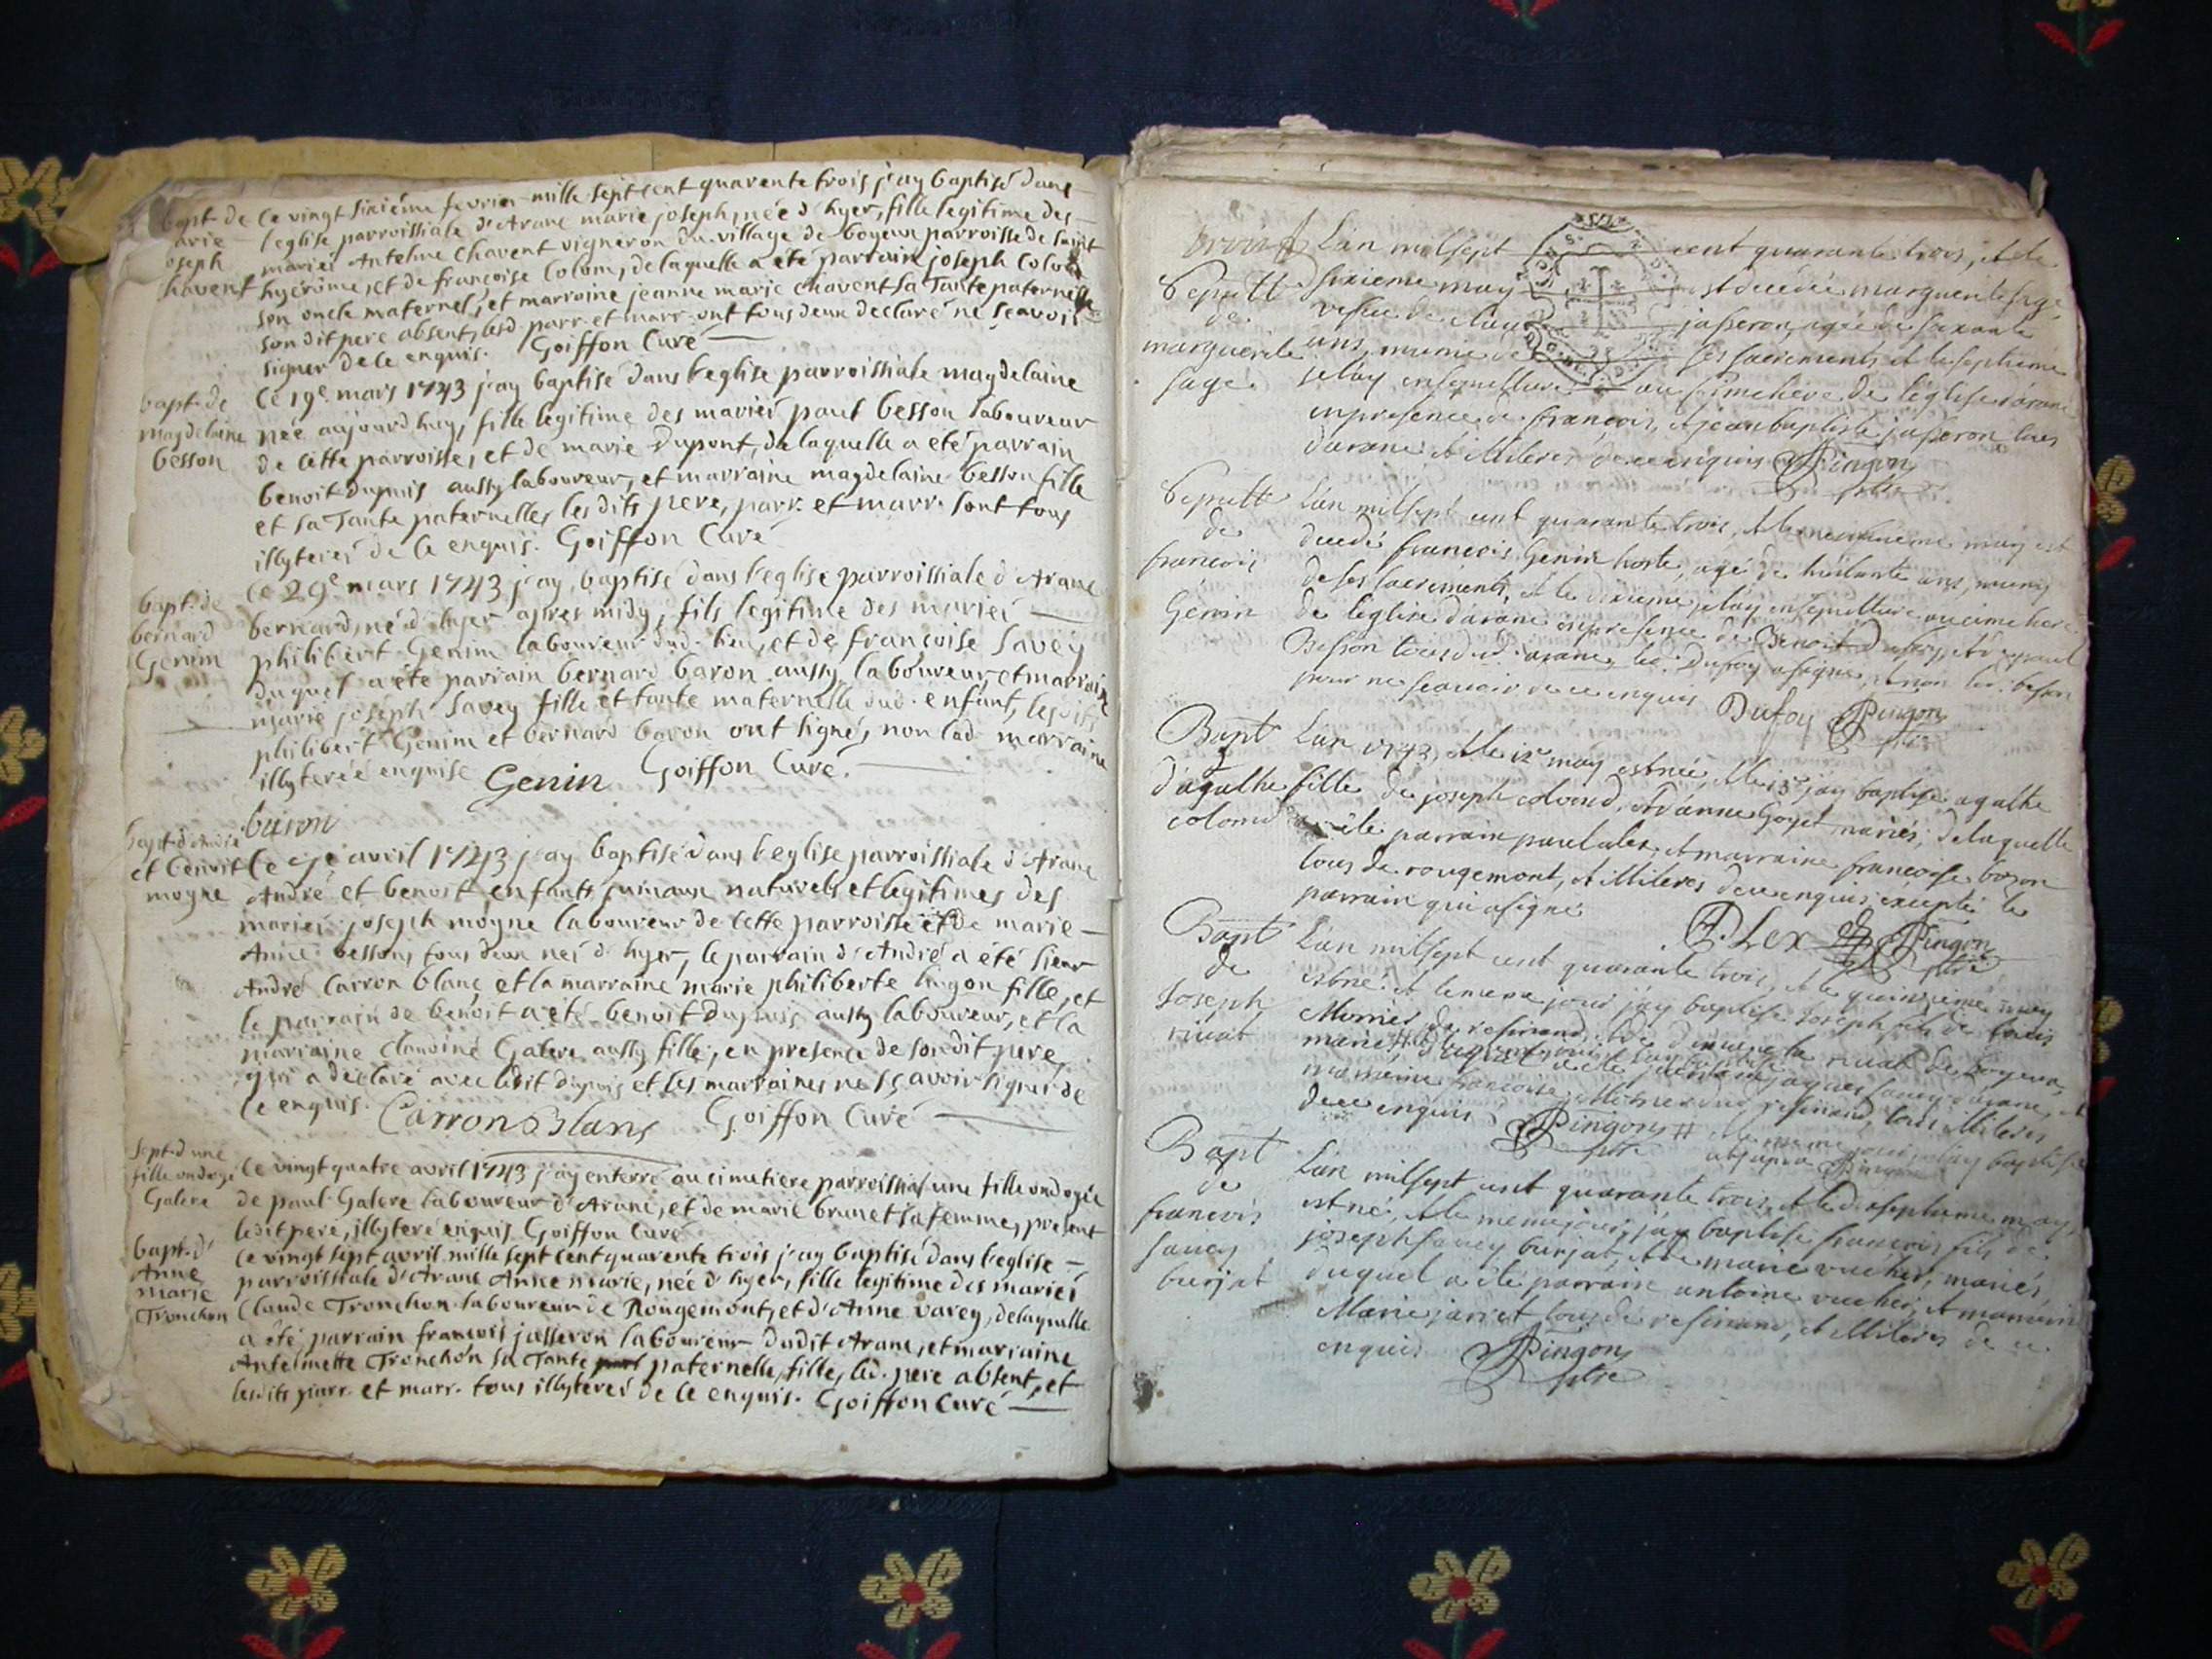 bapt. de Ce vingt sixiéme fevrier mille sept cent quarente trois j'ay baptisé dans
arie l'eglise parroissiale d'Arane marie joseph, née d'hyer, fille legitime des
oseph mariés Antelme Chavent vigneron du village de boyeux parroisse de saint
havent hyerôme, et de françoise Colom, de laquelle a été parrain joseph Colom
son oncle maternel, et marraine jeanne marie chavent sa Tante paternelle
son dit pere absent, lesd. parr. et marr. ont tous deux declaré ne sçavoir
signer de ce enquis. Goiffon Curé
bapt. de Ce 19e mars 1743 j'ay baptisé dans l'eglise parroissiale magdelaine
magdelaine née aujourd'huy, fille legitime des mariés paul besson laboureur
besson de cette parroisse, et de marie Dupont, de laquelle a été parrain
benoit dupuis aussy laboureur, et marraine magdelaine besson fille
et sa Tante paternelle, les dits pere, parr. et marr. sont tous
illyterés de ce enquis. Goiffon Curé
bapt. de Ce 29e mars 1743 j'ay baptisé dans l'eglise parroissiale d'Arane
bernard bernard, né d'hyer apres midy, fils legitime des mariés
Genim philibert Genim laboureur dud. lieu, et de françoise Savey
duquel a été parrain bernard baron aussy laboureur, et marraine
marie joseph Savey fille et tante maternelle dud. enfant, lesdits
philibert Genim et bernard baron ont signé, non lad. marraine
illyterée enquise Genin Goiffon Curé.
baron
bapt. d'André
et benoit Ce avril 1743 j'ay baptisé dans l'eglise parroissiale d'Arane
moyne André et benoit enfants jumaux naturels et legitimes des
mariés joseph moyne laboureur de cette parroisse et de marie
Anne besson, tous deux nés d'hyer, le parrain d'André a été sieur
André Carron blanc, et la marraine marie philiberte fille, et
le parrain de benoit a été benoit dupuis aussy laboureur, et la
marraine claudine Galere aussy fille, en presence de son dit pere,
qui a declaré avec ledit dupuis et les marraines ne sçavoir signer de
ce enquis. Carron Blanc Goiffon Curé
Sept. d'une
fille ondoyé Ce vingt quatre avril 1743 j'ay enterré au cimetiere parroissial une fille ondoyée
Galere de paul Galere laboureur d'Arane, et de marie brunet sa femme, present
ledit pere, illyteré enquis Goiffon Curé
bapt. d' Ce vingt sept avril mille sept cent quarente trois j'ay baptisé dans l'eglise
Anne parroissiale d'Arane Anne marie, née d'hyer, fille legitime des mariés
marie
Tronchon Claude Tronchon laboureur de Rougemont, et d'Anne varey, de laquelle
a été parrain françois jasseron laboureur dudit Arane, et marraine
Antelmette Tronchon sa Tante paternelle, fille, led. pere absent, et
lesdits parr. et marr. tous illyterés de ce enquis. Goiffon Curé
L'an mil sept cent quarante trois, et le
Sepult sixieme may est decedée marguerite sage,
de vefue de jasseron, agée de soixante
marguerite ans, munie de ses sacrements et le septieme
sage. je l'ay ensepulturé au simetiere de l'église d'arane
en presence de françois, et jean baptiste jasseron tous
d'arane et illiteres de ce enquis Pingon
ptre
Sepult L'an mil sept cent quarante trois, et le neuvieme may est
de decedé francois Genin hoste, agé de huitante ans, muny
francois de ses sacrements, et le dixieme je l'ay ensepulturé au cimetiere
Genin de l'eglise d'arane en presence de Benoit Dufoy, et de paul
Besson tous dud. arane, led. Dufoy a signé, et non led. besson
pour ne scauoir de ce enquis Dufoy Pingon
ptre
Bapt L'an 1743, et le 12e may est née, et le 13e j'ay baptisé agathe
d'agathe fille de joseph colomd, et d'anne Goyet mariés, de laquelle
colomd a été parrain paul alex, et marraine françoise bozon
tous de rougemont, et illiteres de ce enquis, excepté le
parrain qui a signé P. Lex Pingon
ptre
Bapt L'an mil sept cent quarante trois, et le quinzieme may
de est né et le meme jour j'ay baptisé Joseph fils de
Joseph Monnier de resinand,
rivat mariés, duquel a été parrain jacques savey d'arane, et
marraine francoise Monnier dud. resinand, tous illiteres
de ce enquis Pingon
ptre
Bapt L'an mil sept cent quarante trois, et le dixseptieme may
de est né, et le meme jour j'ay baptisé francois fils de
francois joseph savey burjat, et de marie vucher, mariés,
savey duquel a été parrain antoine vucher, et marraine
burjat Marie jarret tous de resinand, et illiteres de ce
enquis Pingon
ptre